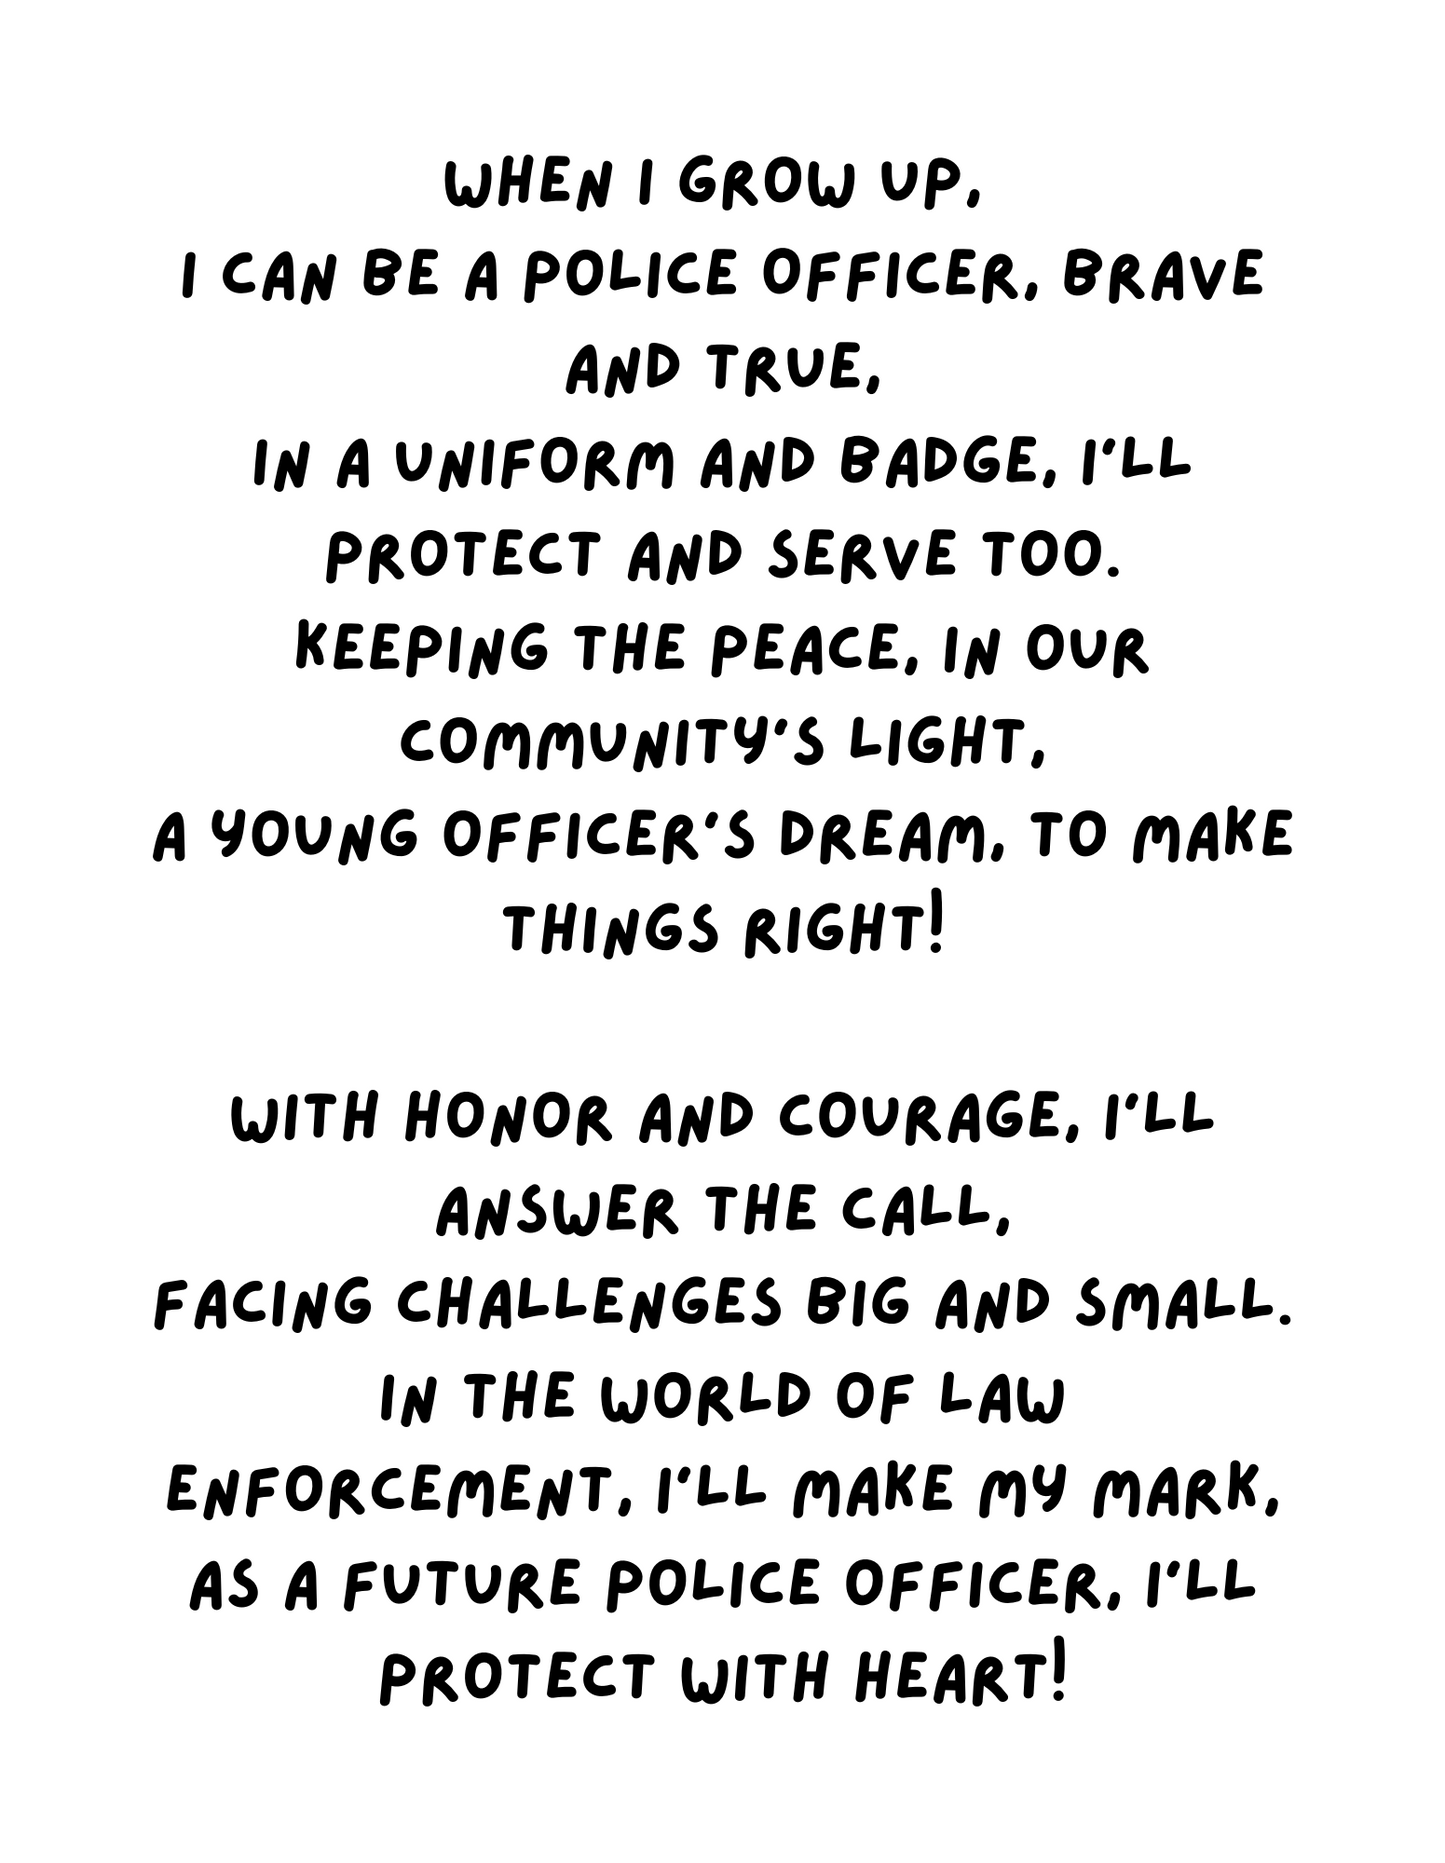 WHEN I GROW UP,
I CAN BE A POLICE OFFICER, BRAVE
AND TRUE,
IN A UNIFORM AND BADGE, I'LL
PROTECT AND SERVE TOO.
KEEPING THE PEACE, IN OUR
COMMUNITY'S LIGHT,
A YOUNG OFFICER'S DREAM, TO MAKE
THINGS RIGHT!
WITH HONOR AND COURAGE, I'LL
ANSWER THE CALL,
FACING CHALLENGES BIG AND SMALL.
IN THE WORLD OF LAW
ENFORCEMENT, I'LL MAKE MY MARK,
AS A FUTURE POLICE OFFICER, I'LL
PROTECT WITH HEART!